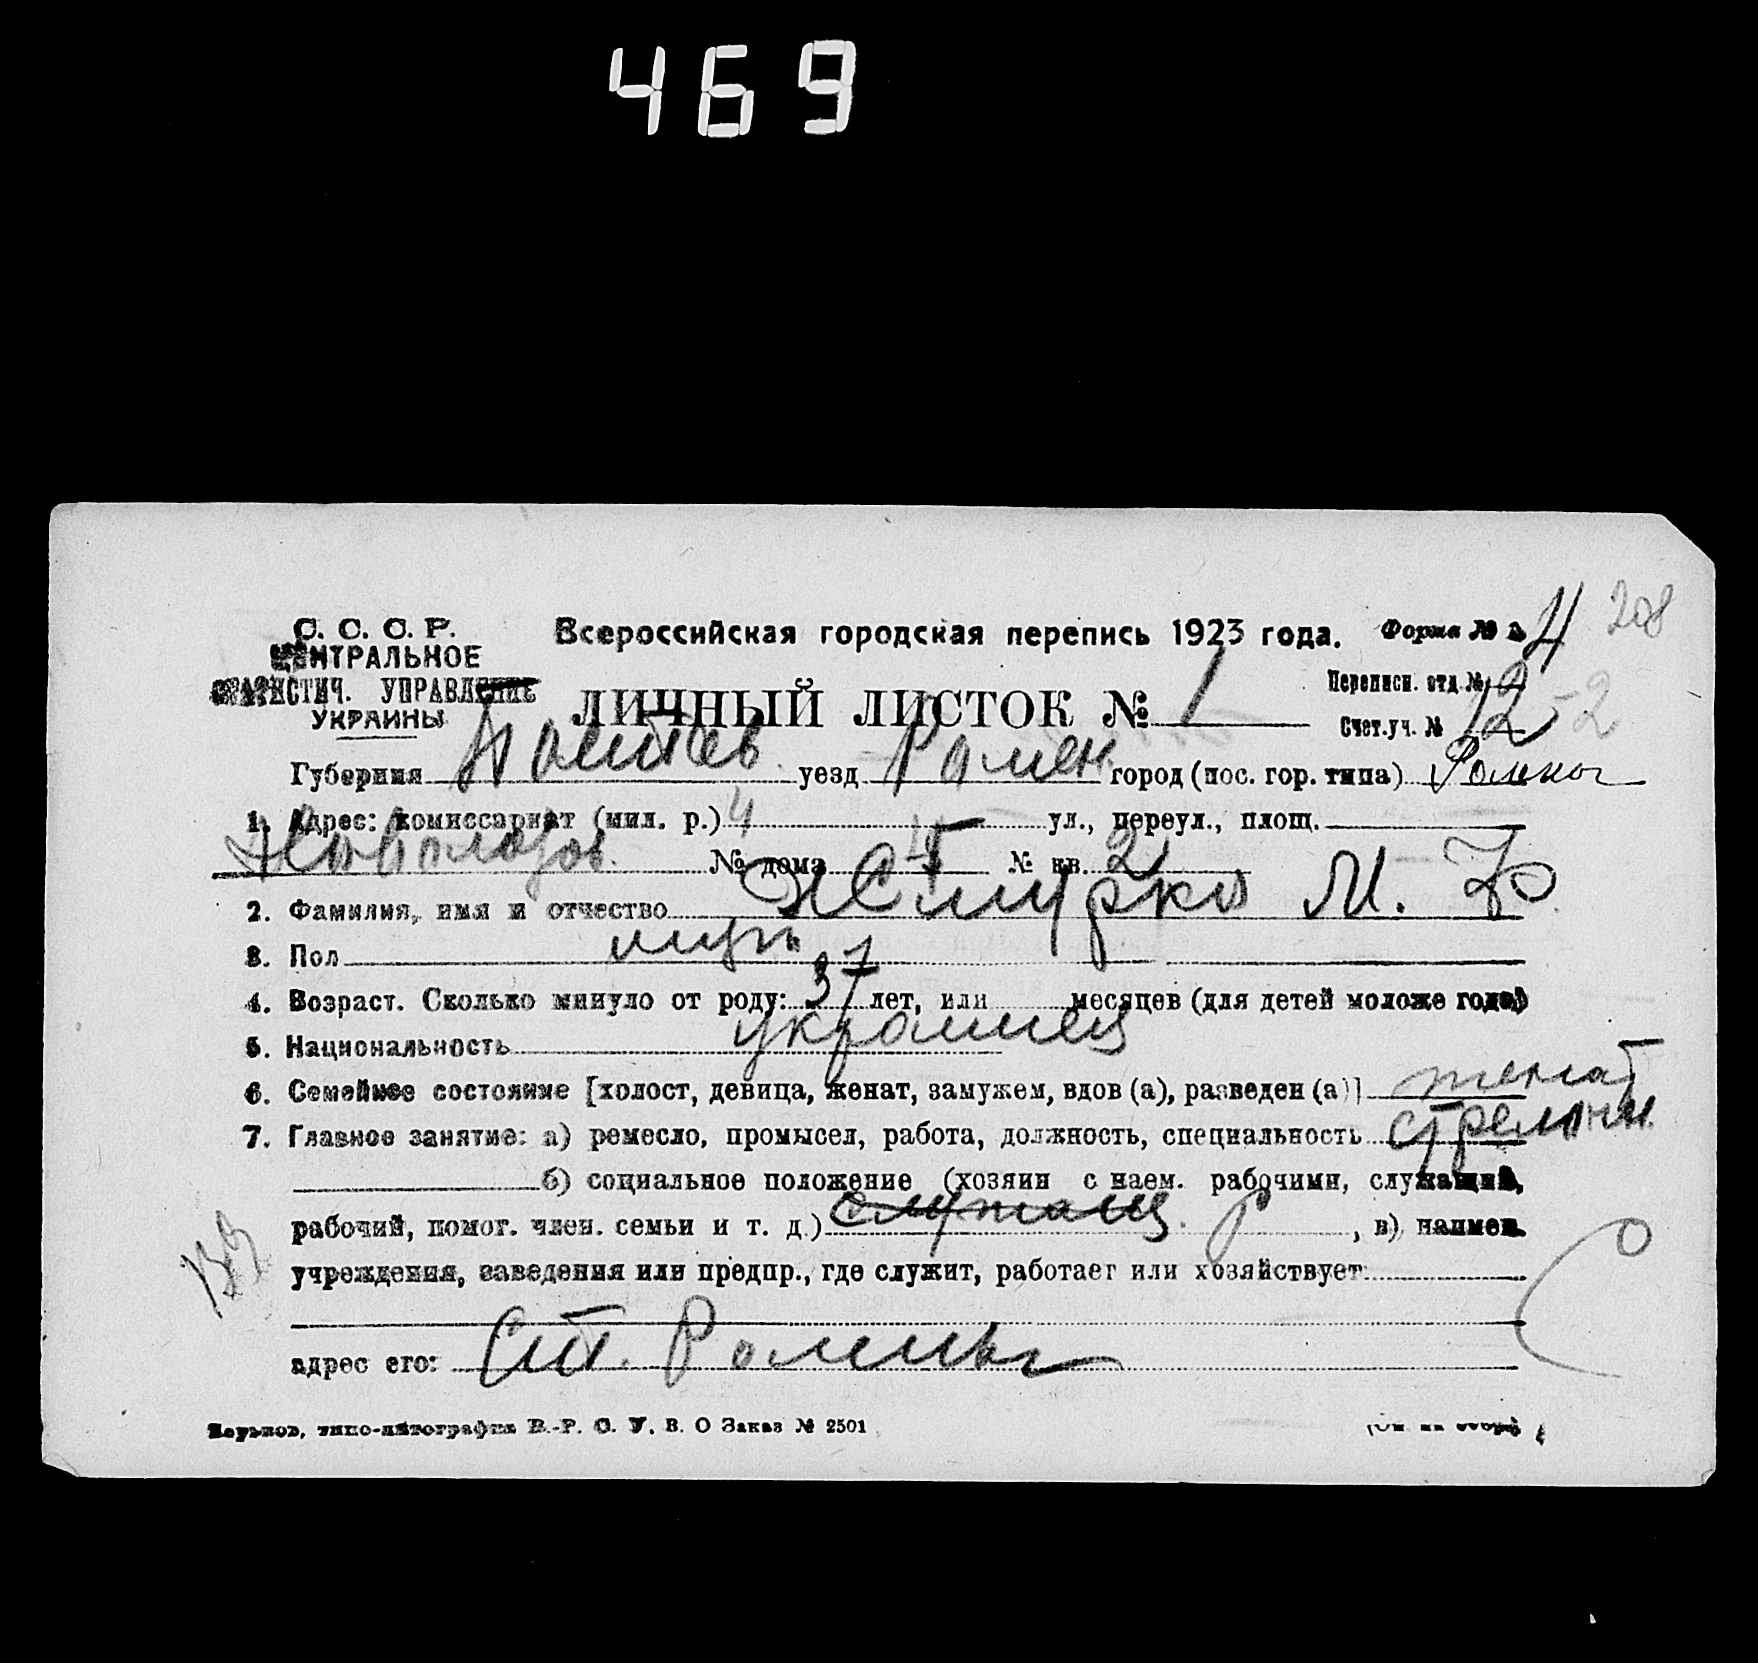 469
С. С. С. Р.
ЦЕНТРАЛЬНОЕ
СТАТИСТИЧ. УПРАВЛЕНИЕ
УКРАИНЫ
Всероссийская городская перепись 1923 года.
Форма № 2 4 208
ЛИЧНЫЙ ЛИСТОК № 1
Переписн. отд. № 2
Счет.уч. № 12 - 2
Губерния Полтав. уезд Ромен. город (пос. гор. типа) Ромны
1. Адрес: комиссариат (мил. р.) 4 ул., переул., площ.
№ дома № кв. 2
2. Фамилия, имя и отчество М.
3. Пол муж
4. Возраст. Сколько минуло от роду: 37 лет, или месяцев (для детей моложе года)
5. Национальность украинец
6. Семейное состояние [холост, девица, женат, замужем, вдов (а), разведен (а)] женат
7. Главное занятие: а) ремесло, промысел, работа, должность, специальность стрелочн.
б) социальное положение (хозяин с наем. рабочими, служащий,
рабочий, помог. член. семьи и т. д.) служащ. Р , в) наимен.
учреждения, заведения или предпр., где служит, работает или хозяйствует:
адрес его: Ст. Ромны
Харьков, типо-литография В.-Р. С. У. В. О Заказ № 2501
(См. на обор.)